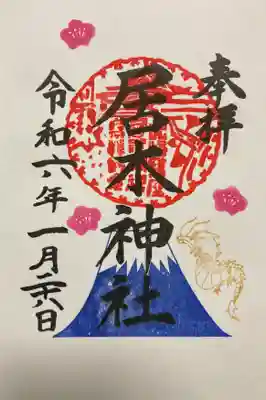 奉拝
居木神社
令和六年一月二六日